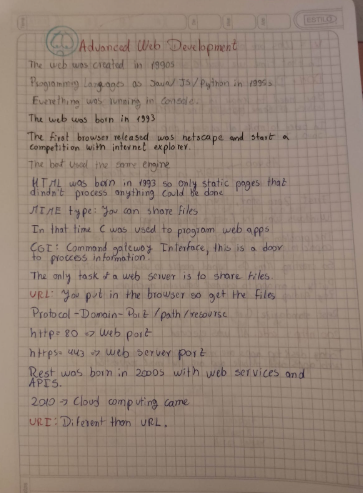 Advanced Web Development
The web was created in 1990s
Programming languages as Java/JS/Python in 1995s
Everything was running in console.
The web was born in 1993
The first browser released was netscape and start a
competition with internet explorer.
The bot used the same engine
HTML was born in 1993 so only static pages that
didn't process anything could be done
MIME type: You can share files
In that time C was used to program web apps
CGI: Command gateway Interface, this is a door
to process information.
The only task of a web server is to share files.
URL: You put in the browser so get the files
Protocol-Domain-Port/path/resourse
http=80 => Web port
https=443 => Web server port
Rest was born in 2000s with web services and
APIS.
2010 -> Cloud computing came
URI: Diferent than URL.